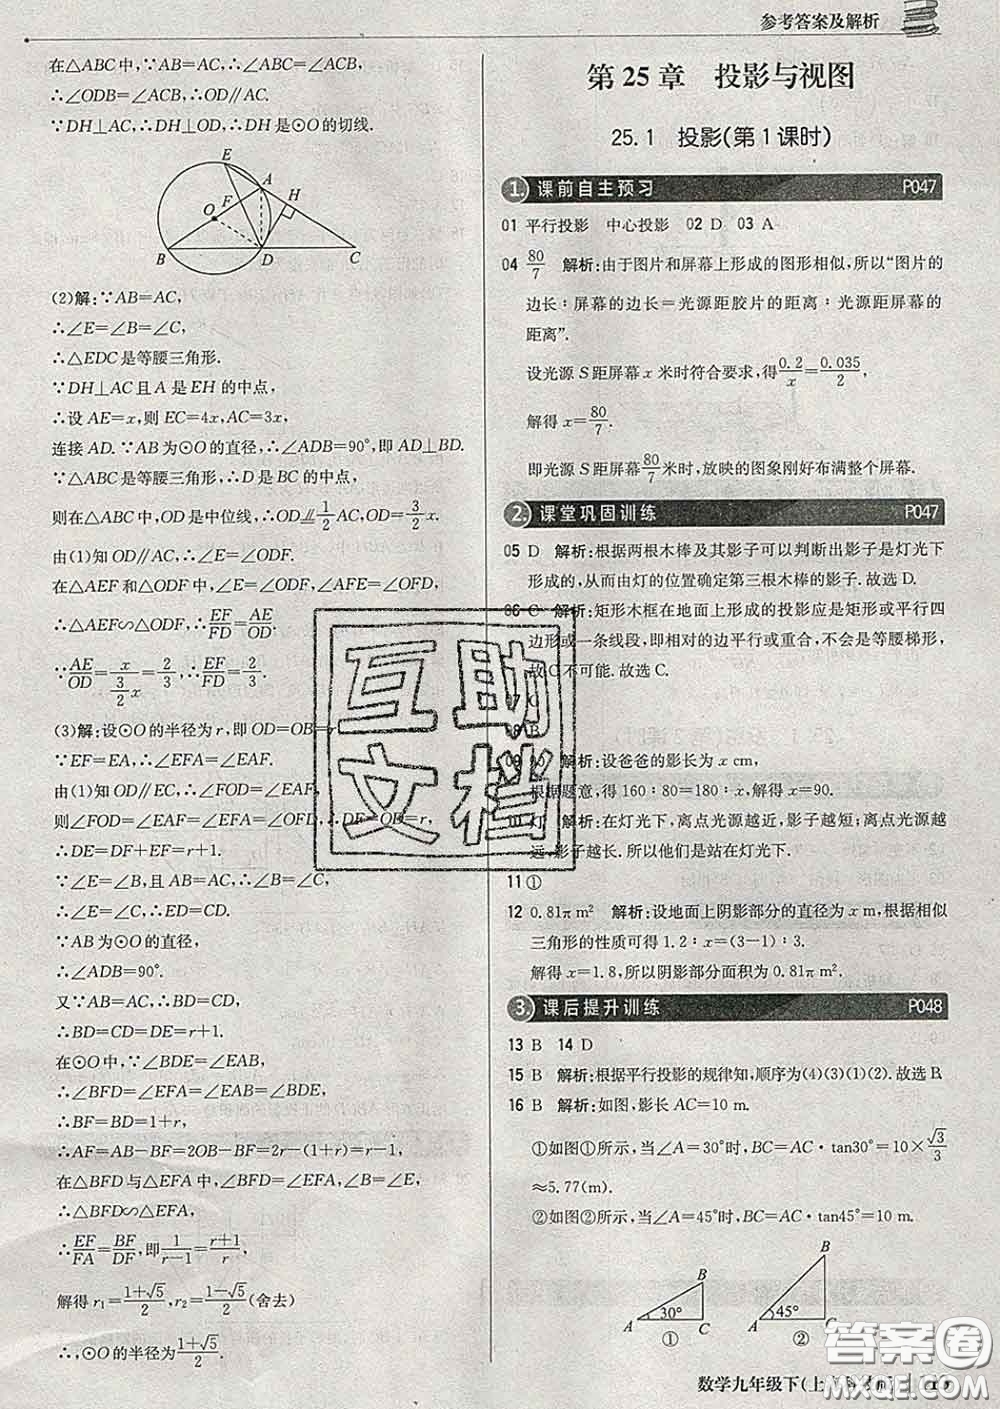 参考答案及解析
在△ABC中,∵AB=AC,∴∠ABC=∠ACB,
∴∠ODB=∠ACB,∴OD∥AC.
∵DH⊥AC,∴DH⊥OD,∴DH是⊙O的切线.
E
A
H
F
O
B
D
C
(2)解:∵AB=AC,
∴∠E=∠B=∠C,
∴△EDC是等腰三角形.
∵DH⊥AC且A是EH的中点,
∴设AE=x,则EC=4x,AC=3x,
连接AD.∵AB为⊙O的直径,∴∠ADB=90°,即AD⊥BD.
∵△ABC是等腰三角形,∴D是BC的中点,
则在△ABC中,OD是中位线,∴OD∥=1/2AC,OD=3/2x.
由(1)知OD∥AC,∴∠E=∠ODF.
在△AEF和△ODF中,∠E=∠ODF,∠AFE=∠OFD,
∴△AEF∽△ODF,∴EF/FD=AE/OD.
∵AE/OD=x/(3/2x)=2/3,∴EF/FD=2/3.
(3)解:设⊙O的半径为r,即OD=OB=r.
∵EF=EA,∴∠EFA=∠EAF.
由(1)知OD∥EC,∴∠FOD=∠EAF,
则∠FOD=∠EAF=∠EFA=∠OFD,∴DF=OD=r,
∴DE=DF+EF=r+1.
∵∠E=∠B,且AB=AC,∴∠B=∠C,
∴∠E=∠C,∴ED=CD.
∵AB为⊙O的直径,
∴∠ADB=90°.
又∵AB=AC,∴BD=CD,
∴BD=CD=DE=r+1.
在⊙O中,∵∠BDE=∠EAB,
∴∠BFD=∠EFA=∠EAB=∠BDE,
∴BF=BD=1+r,
∴AF=AB-BF=2OB-BF=2r-(1+r)=r-1.
在△BFD与△EFA中,∠BFD=∠EFA,∠B=∠E,
∴△BFD∽△EFA,
∴EF/FA=BF/DF,即1/(r-1)=(r+1)/r,
解得r₁=(1+√5)/2,r₂=(1-√5)/2(舍去)
∴,⊙O的半径为(1+√5)/2.
第25章 投影与视图
25.1 投影(第1课时)
1. 课前自主预习 P047
01 平行投影 中心投影 02 D 03 A
04 80/7 解析:由于图片和屏幕上形成的图形相似,所以“图片的
边长:屏幕的边长=光源距胶片的距离:光源距屏幕的
距离”.
设光源S距屏幕x米时符合要求,得0.2/x=0.035/2,
解得x=80/7.
即光源S距屏幕80/7米时,放映的图象刚好布满整个屏幕.
2. 课堂巩固训练 P047
05 D 解析:根据两根木棒及其影子可以判断出影子是灯光下
形成的,从而由灯的位置确定第三根木棒的影子.故选D.
06 C 解析:矩形木框在地面上形成的投影应是矩形或平行四
边形或一条线段,即相对的边平行或重合,不会是等腰梯形,
故C不可能.故选C.
07 C
08 B
09 90 解析:设爸爸的影长为x cm,
根据题意,得160:80=180:x,解得x=90.
10 灯 解析:在灯光下,离点光源越近,影子越短;离点光源越
远,影子越长.所以他们是站在灯光下.
11 ①
12 0.81π m² 解析:设地面上阴影部分的直径为x m,根据相似
三角形的性质可得1.2:x=(3-1):3.
解得x=1.8,所以阴影部分面积为0.81π m².
3. 课后提升训练 P048
13 B 14 D
15 B 解析:根据平行投影的规律知,顺序为(4)(3)(1)(2).故选B.
16 B 解析:如图,影长AC=10 m.
①如图①所示,当∠A=30°时,BC=AC·tan30°=10×√3/3
≈5.77(m).
②如图②所示,当∠A=45°时,BC=AC·tan45°=10 m.
B
A 30° C
①
B
A 45° C
②
互助
文档
答案圈
数学九年级下(上